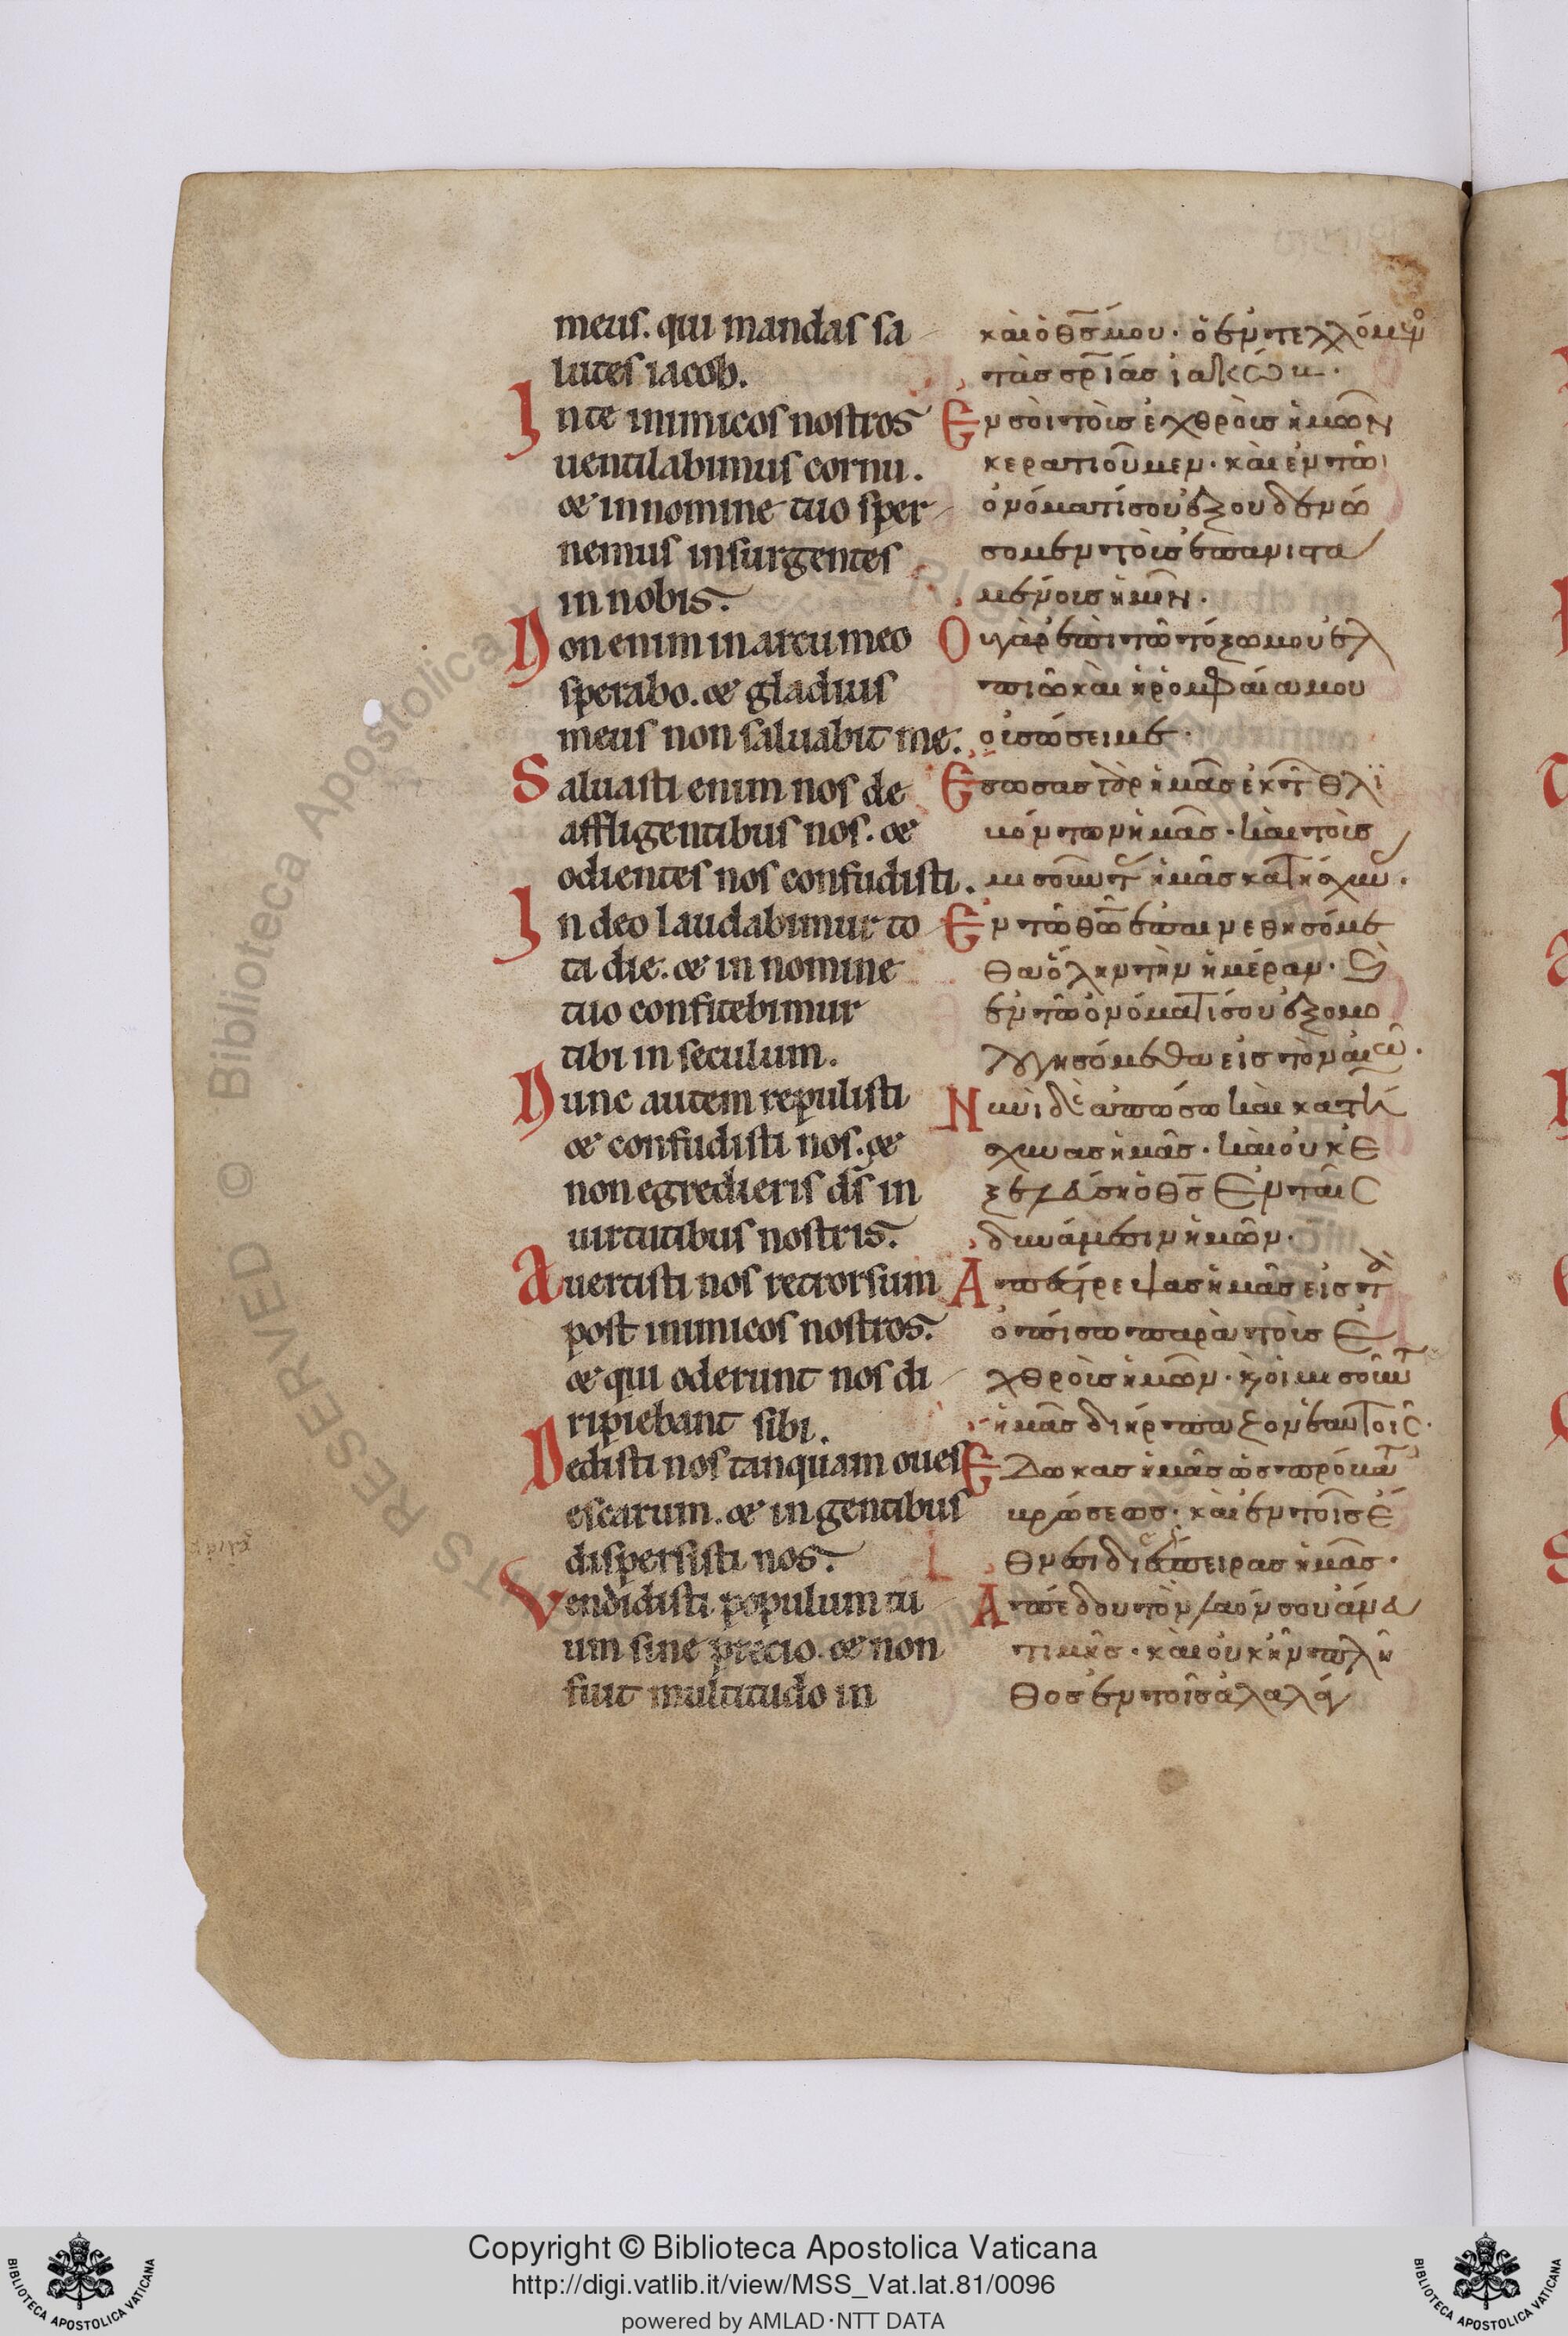 meus. qui mandas sa
lutes iacob.
In te inimicos nostros
uentilabimus cornu.
& in nomine tuo sper
nemus insurgentes
in nobis.
Non enim in arcu meo
sperabo. & gladius
meus non saluabit me.
Saluasti enim nos de
affligentibus nos. &
odientes nos confudisti.
In deo laudabimur to
ta die. & in nomine
tuo confitebimur
tibi in seculum.
Nunc autem repulisti
& confudisti nos. &
non egredieris ds̄ in
uirtutibus nostris.
Auertisti nos retrorsum
post inimicos nostros.
& qui oderunt nos di
ripiebant sibi.
Dedisti nos tanquam oues
escarum. & in gentibus
dispersisti nos.
Vendidisti populum tu
um sine precio. & non
fuit multitudo in
καὶ ὁ θσ̄ μου· ὁ ἐντελλόμενο
τὰσ σρ̄ίασ ἰακὼβ.
Ἐν σοὶ τοὶσ ἐχθροὶσ ἡμῶν
κερατιοῦμεν· καὶ ἐν τῶ
ὀνόματί σου ἐξουδενώ
σομεν τοὶσ ἐπανιστα
μένοισ ἡμῖν.
Ου γὰρ ἐπὶ τῶ τόξω μου ἐλ
πιῶ καὶ ἡ ρομφαία μου
οὐ σώσει με.
Ἔσωσασ γὰρ ἡμᾶσ ἐκ τ̄ θλι
βόντων ἡμᾶσ· καὶ τοὶσ
μισοῦντ ἡμᾶσ κατήσχυν.
Ἐν τῶ θῶ ἐπαινεθησόμε
θα ὅλην τὴν ἡμέραν· Καὶ
ἐν τῶ ὀνόματί σου ἐξομο
λογησόμεθα εἰσ τὸν αἰῶ.
Νυνὶ δὲ ἀπώσω καὶ κατή
σχυνασ ἡμᾶσ· καὶ οὐκ Ἐ
ξελεύση ὁ θσ̄ Ἐν ταῖσ
δυνάμεσιν ἡμῶν.
Ἀπέστρεψασ ἡμᾶσ εἰσ τὰ
ὀπίσω παρὰ τοὶσ Ἐ
χθροὶσ ἡμῶν· κ οἱ μισοῦντ
ἡμᾶσ διήρπαζον ἑαυτοῖσ.
Ἔδωκασ ἡμᾶσ ὡσ πρόβατ
βρώσεωσ· καὶ ἐν τοῖσ ἔ
θνεσι διέσπειρασ ἡμᾶσ.
Ἀπέδου τὸν λαόν σου ἄνευ
τιμῆσ· καὶ οὐκ ἦν πλῆ
θοσ ἐν τοῖσ ἀλαλά
BIBLIOTECA APOSTOLICA VATICANA
Copyright © Biblioteca Apostolica Vaticana
http://digi.vatlib.it/view/MSS_Vat.lat.81/0096
powered by AMLAD·NTT DATA
BIBLIOTECA APOSTOLICA VATICANA